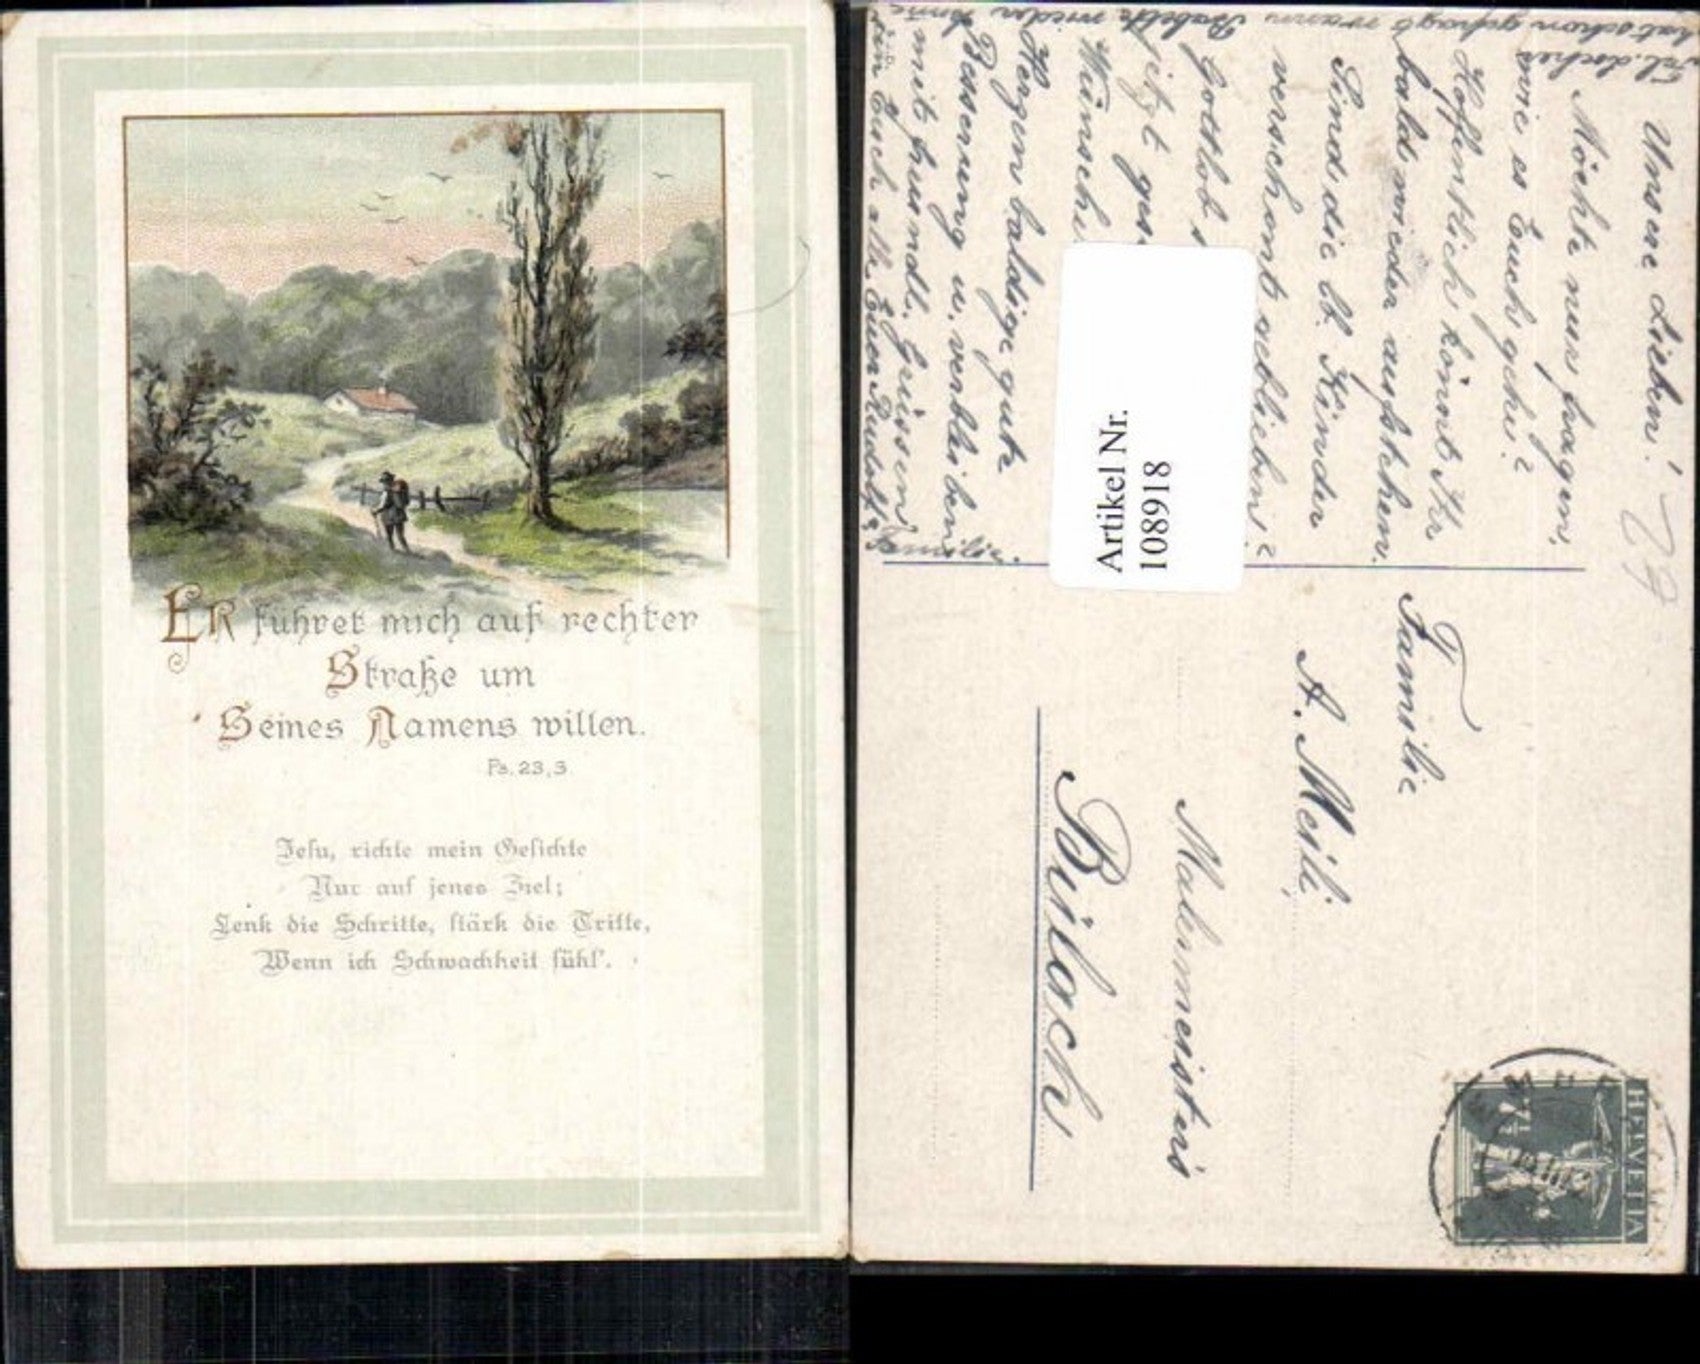 Er führet mich auf rechter
Straße um
Seines Namens willen.
Ps. 23, 3
Jesu, richte mein Gesichte
Nur auf jenes Ziel;
Lenk die Schritte, stärk die Tritte,
Wenn ich Schwachheit fühl'.
Unsere Lieben!
Möchte nur fragen,
wie es Euch geht?
Hoffentlich könnt Ihr
bald wieder aufstehen.
Sind die lb. Kinder
verschont geblieben?
Gottlob
jetzt
Wünsche
Herzen baldige gute
Besserung u. verbleiben
mit freundl. Grüssen
an Euch alle Euer Rudolf &
Familie.
hat schon gefragt wann Babeli wieder
Artikel Nr.
108918
Familie
A. Meili
Malermeisters
Bülach
HELVETIA